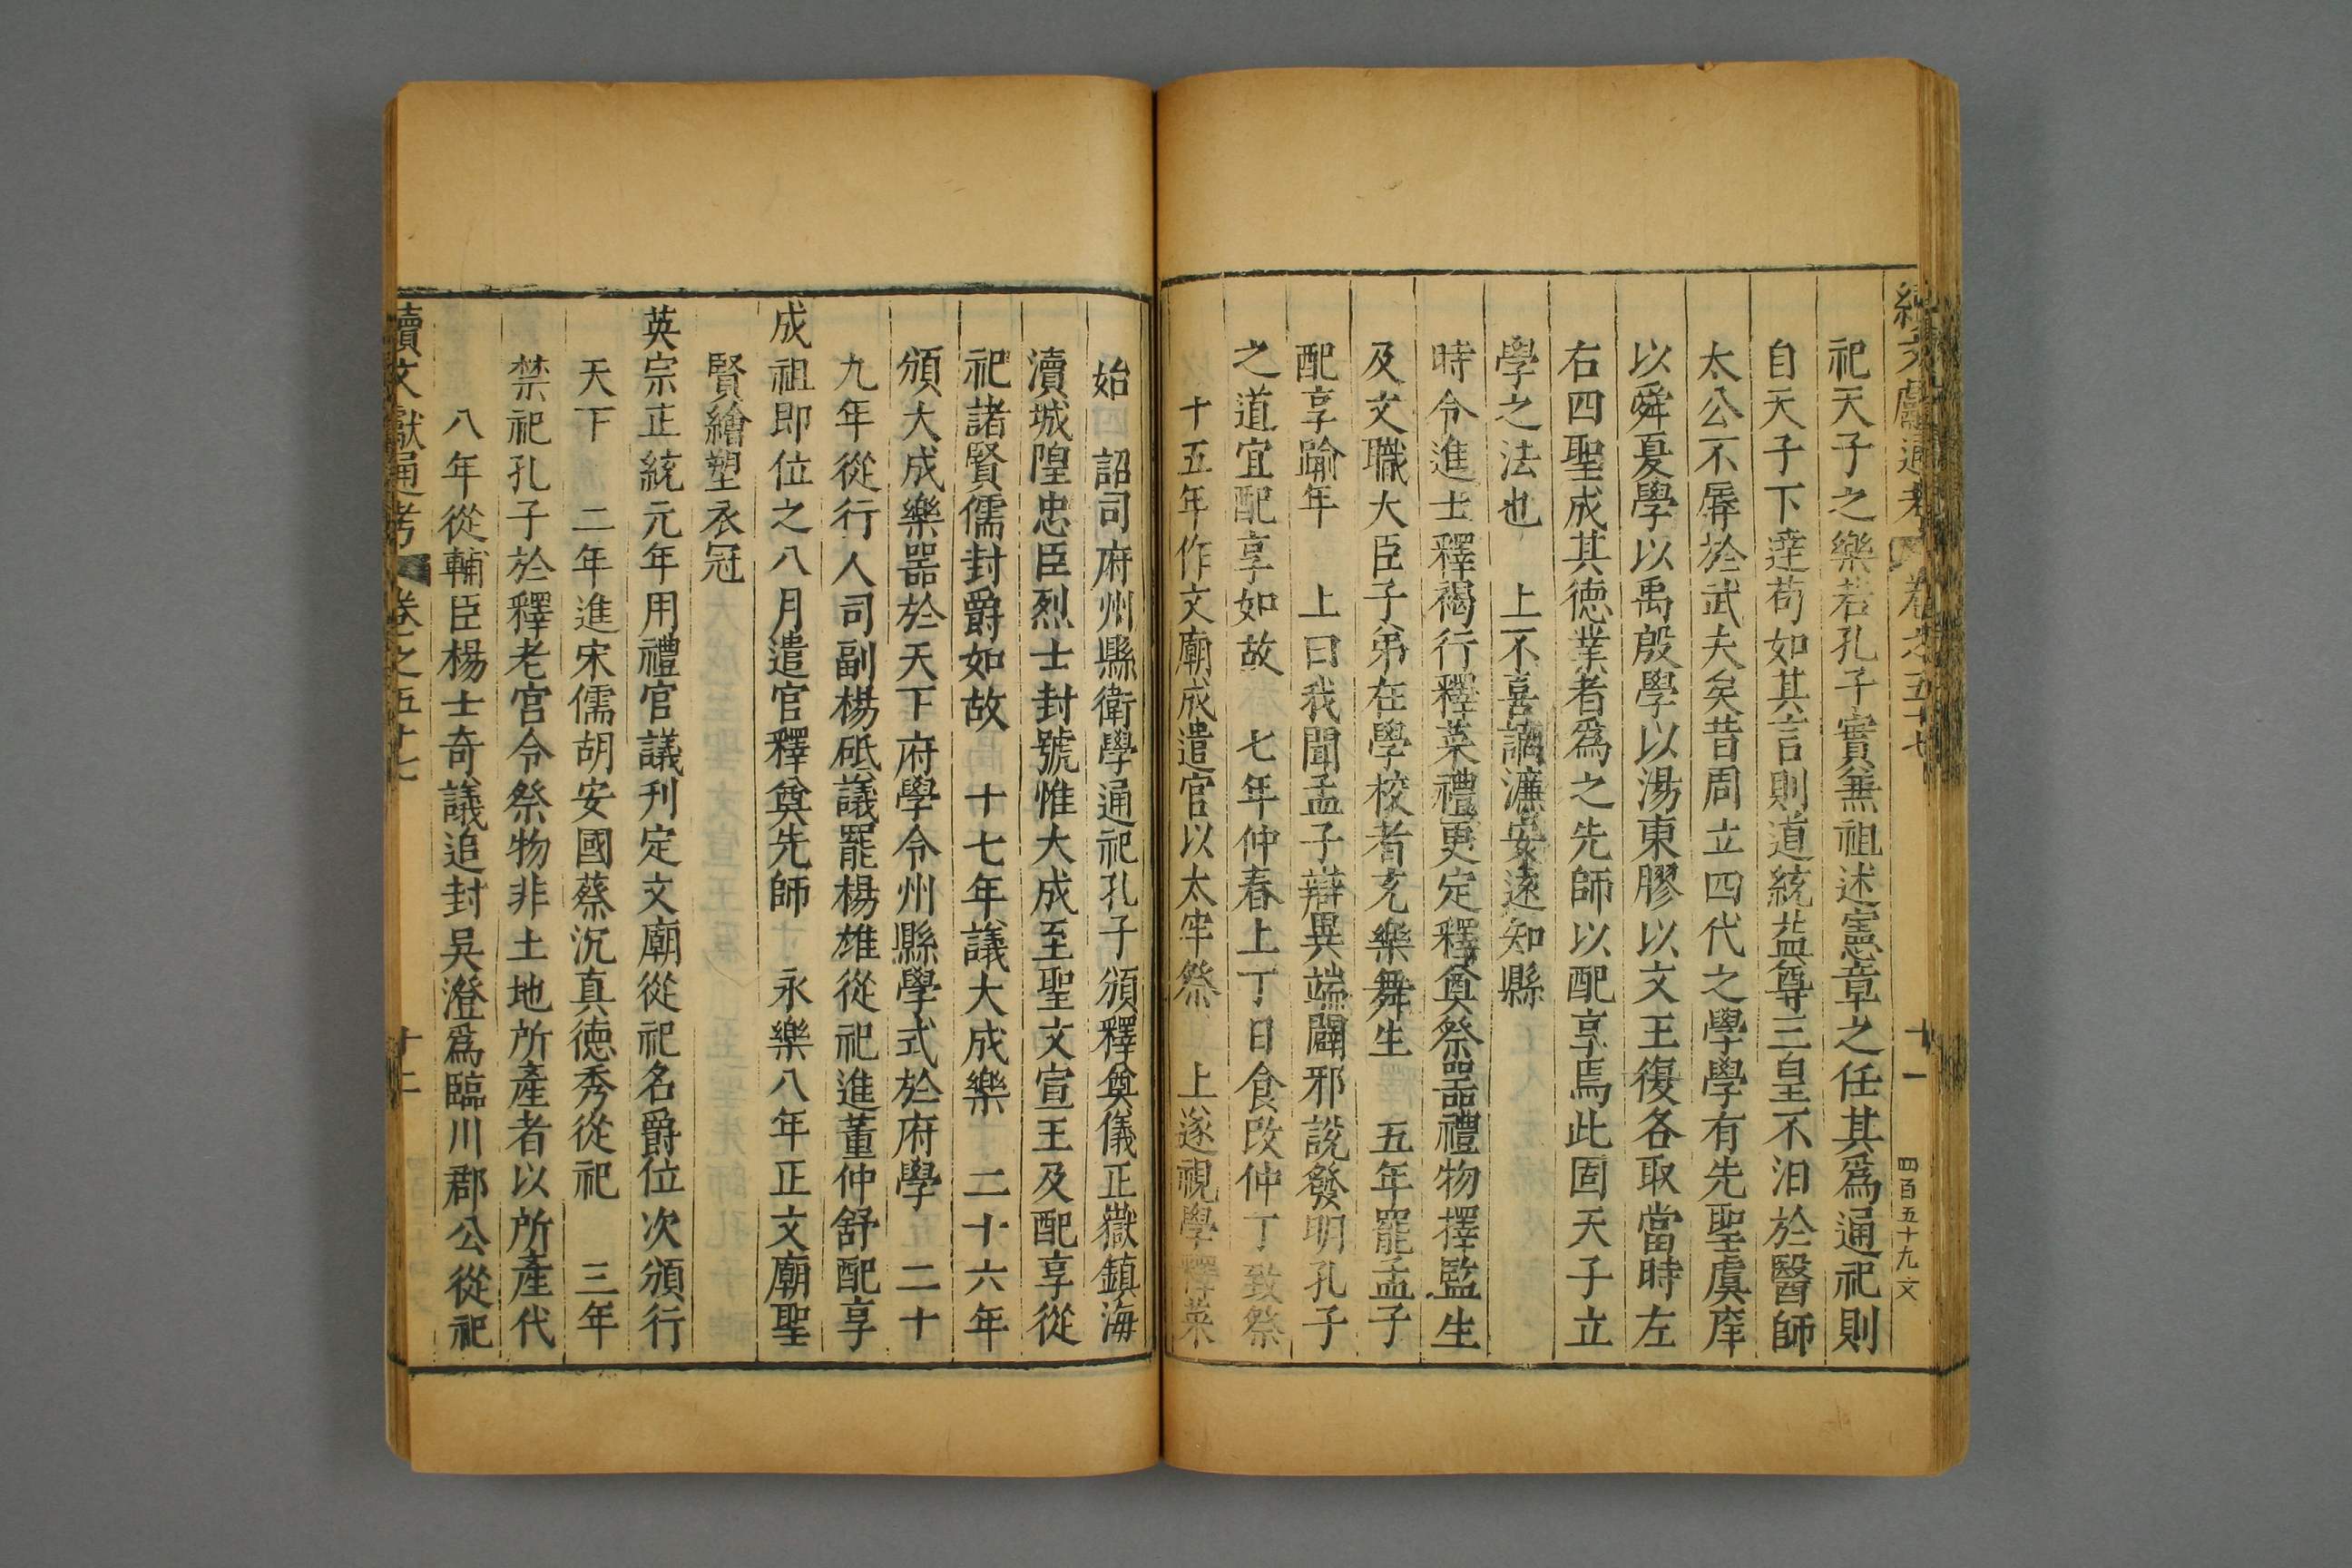 續文獻通考 卷之五十七 十一 四百五十九 文
祀天子之樂若孔子實兼祖述憲章之任其爲通祀則
自天子下達苟如其言則道統益尊三皇不汩於醫師
太公不辱於武夫矣昔周立四代之學學有先聖虞庠
以舜夏學以禹殷學以湯東膠以文王復各取當時左
右四聖成其德業者爲之先師以配享焉此固天子立
學之法也 上不喜謫濂安遠知縣
時令進士釋褐行釋菜禮更定釋奠祭器禮物擇監生
及文職大臣子弟在學校者充樂舞生 五年罷孟子
配享踰年 上曰我聞孟子辯異端闢邪說發明孔子
之道宜配享如故 七年仲春上丁日食改仲丁致祭
十五年作文廟成遣官以太牢祭 上遂視學釋菜
始 詔司府州縣衛學通祀孔子頒釋奠儀正嶽鎮海
瀆城隍忠臣烈士封號惟大成至聖文宣王及配享從
祀諸賢儒封爵如故 十七年議大成樂 二十六年
頒大成樂器於天下府學令州縣學式於府學 二十
九年從行人司副楊砥議罷楊雄從祀進董仲舒配享
成祖即位之八月遣官釋奠先師 永樂八年正文廟聖
賢繪塑衣冠
英宗正統元年用禮官議刊定文廟從祀名爵位次頒行
天下 二年進宋儒胡安國蔡沉真德秀從祀 三年
禁祀孔子於釋老宮令祭物非土地所產者以所產代
八年從輔臣楊士奇議追封吳澄爲臨川郡公從祀
續文獻通考 卷之五十七 十二